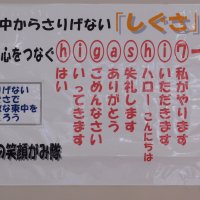 中からさりげない『しぐさ』
心をつなぐ ⓗⓘⓖⓐⓢⓗⓘワー
私がやります
いただきます
ハロー こんにちは
失礼します
ありがとう
ごめんなさい
いってきます
はい
りげない
さで
な東中を
ろう
の笑顔がみ隊